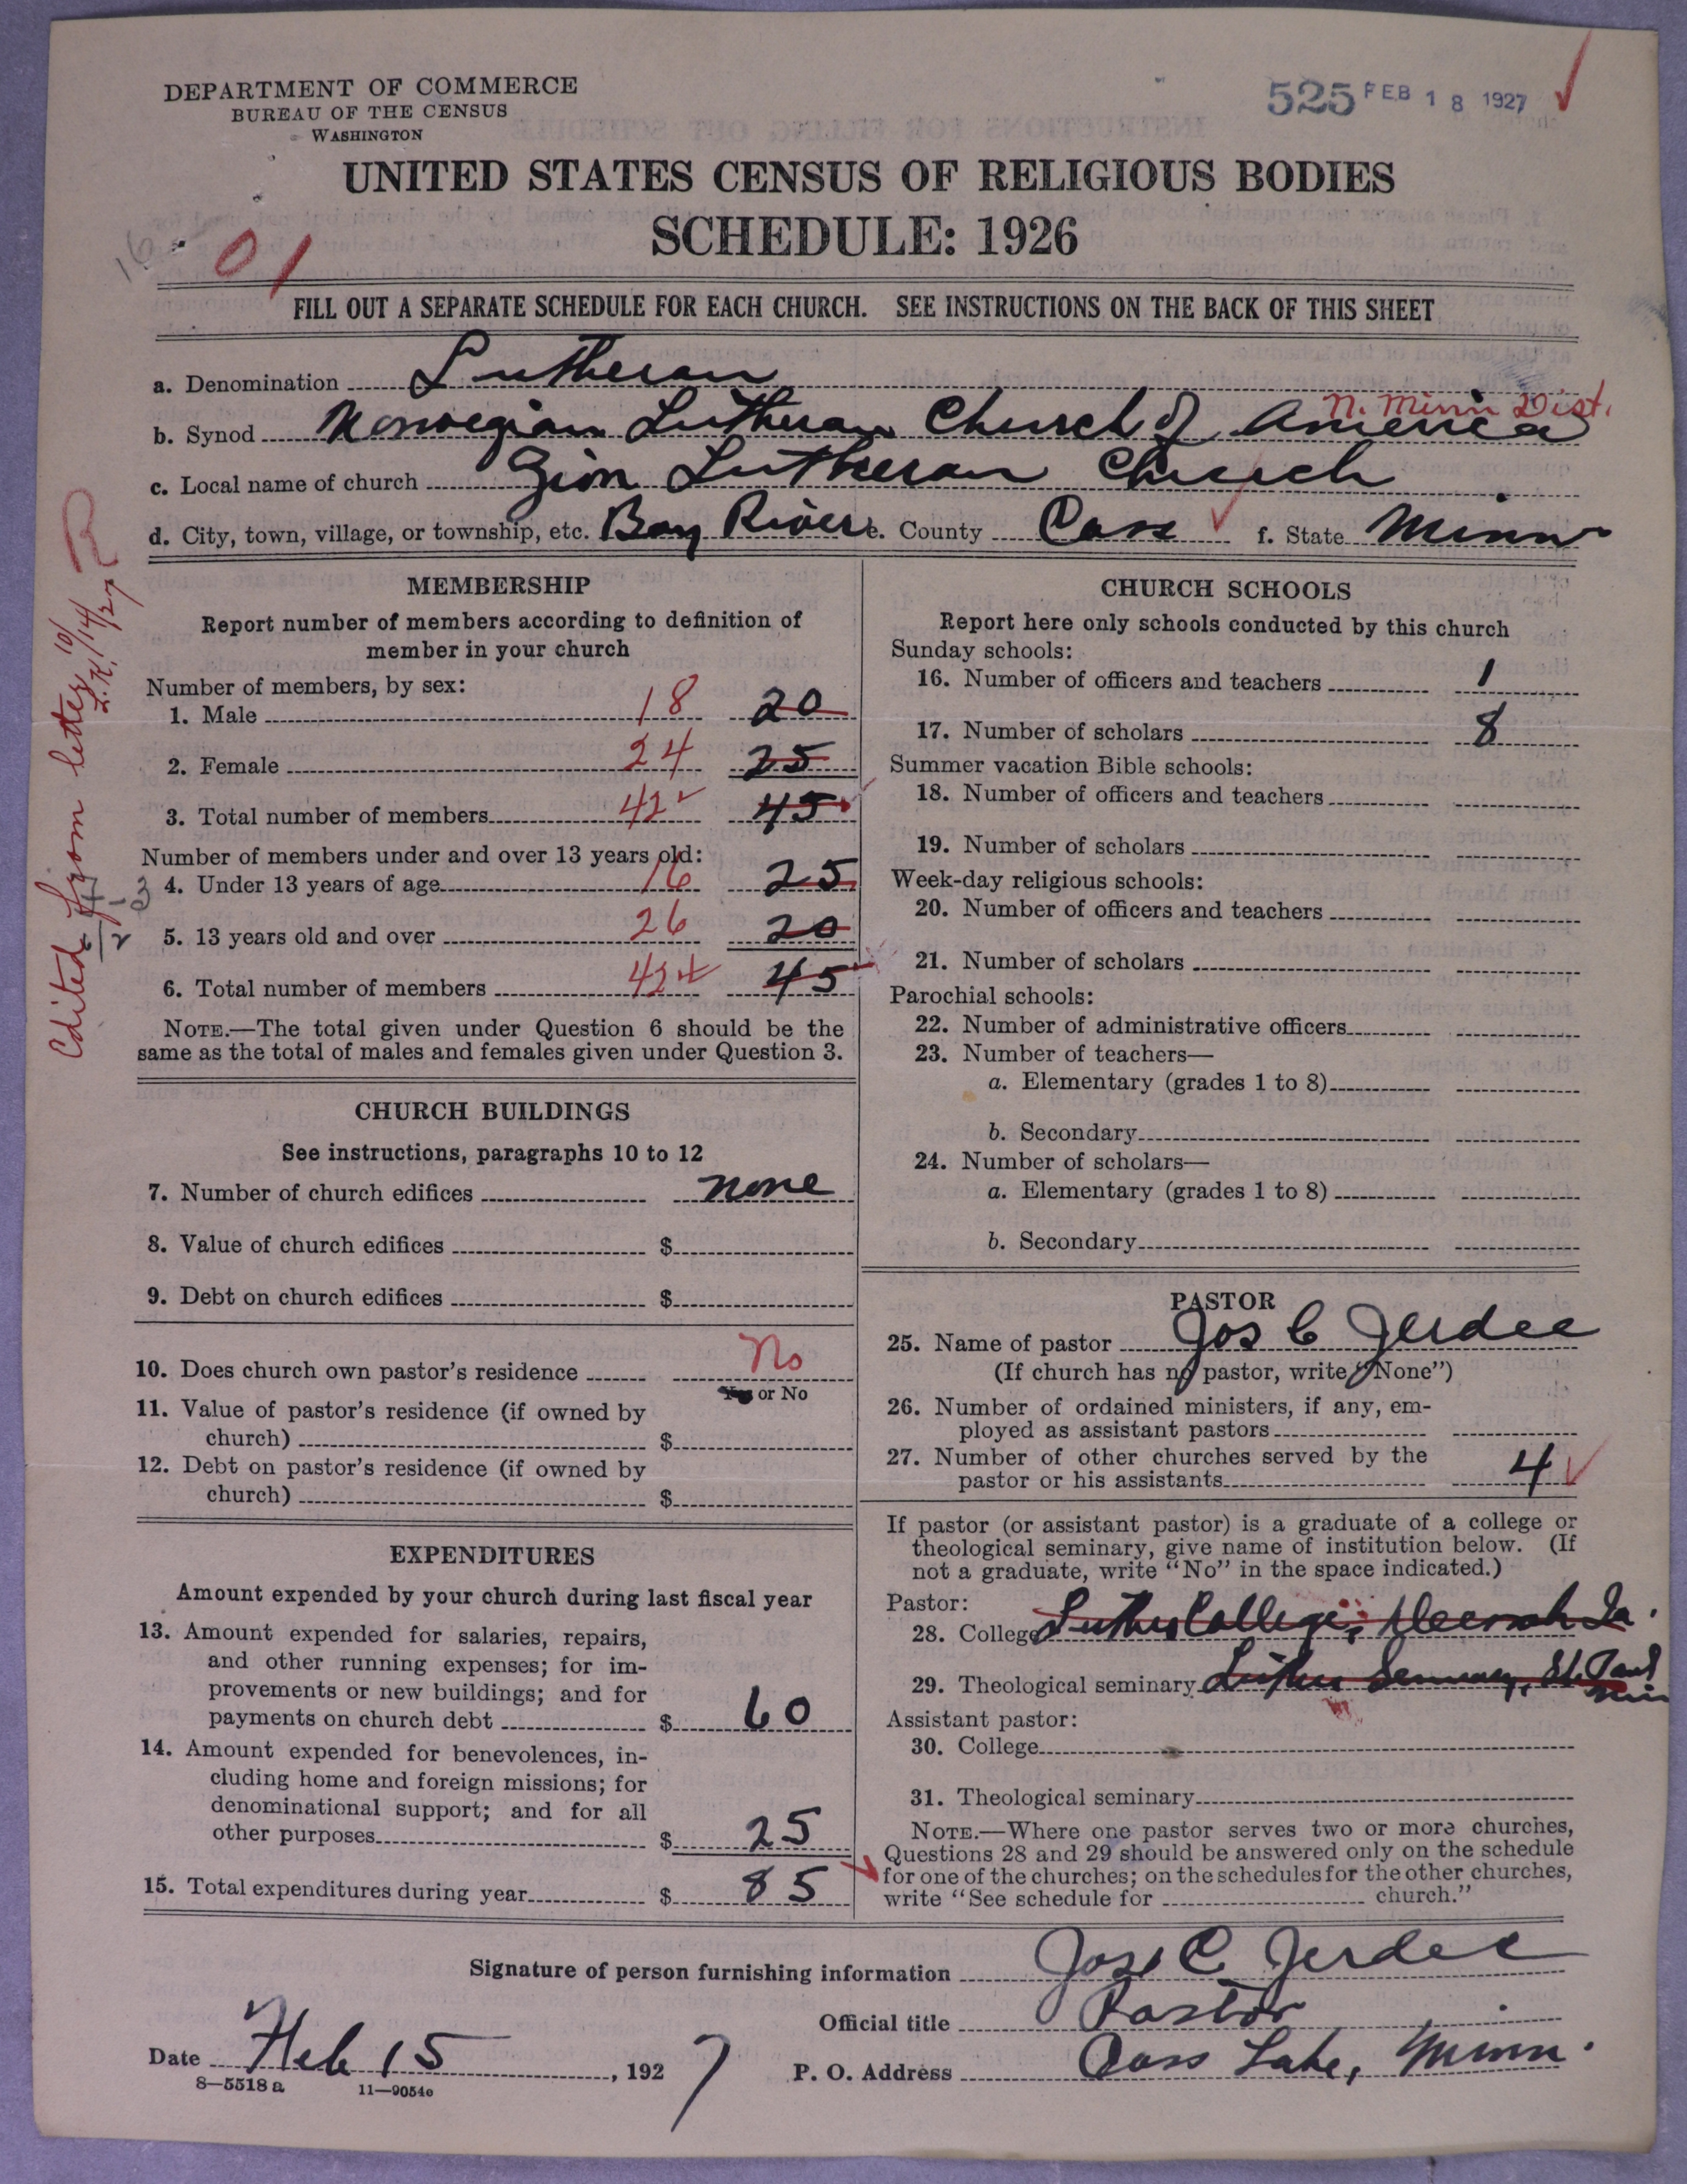 DEPARTMENT OF COMMERCE
BUREAU OF THE CENSUS
WASHINGTON
525 FEB 18 1927
UNITED STATES CENSUS OF RELIGIOUS BODIES
SCHEDULE: 1926
16
01
FILL OUT A SEPARATE SCHEDULE FOR EACH CHURCH. SEE INSTRUCTIONS ON THE BACK OF THIS SHEET
a. Denomination Lutheran
N. Minn Dist.
b. Synod Norwegian Lutheran Church of America
c. Local name of church Zion Lutheran Church
d. City, town, village, or township, etc. Boy River e. County Cass f. State Minn
Edited from letter 10/14/27 R
MEMBERSHIP
Report number of members according to definition of
member in your church
Number of members, by sex:
1. Male 18 20
2. Female 24 25
3. Total number of members 42 45
Number of members under and over 13 years old:
4. Under 13 years of age 16 25
5. 13 years old and over 26 20
6. Total number of members 42 45
NOTE.—The total given under Question 6 should be the
same as the total of males and females given under Question 3.
CHURCH BUILDINGS
See instructions, paragraphs 10 to 12
7. Number of church edifices none
8. Value of church edifices $
9. Debt on church edifices $
10. Does church own pastor's residence No
Yes or No
11. Value of pastor's residence (if owned by
church) $
12. Debt on pastor's residence (if owned by
church) $
EXPENDITURES
Amount expended by your church during last fiscal year
13. Amount expended for salaries, repairs,
and other running expenses; for im-
provements or new buildings; and for
payments on church debt $ 60
14. Amount expended for benevolences, in-
cluding home and foreign missions; for
denominational support; and for all
other purposes $ 25
15. Total expenditures during year $ 85
CHURCH SCHOOLS
Report here only schools conducted by this church
Sunday schools:
16. Number of officers and teachers 1
17. Number of scholars 8
Summer vacation Bible schools:
18. Number of officers and teachers
19. Number of scholars
Week-day religious schools:
20. Number of officers and teachers
21. Number of scholars
Parochial schools:
22. Number of administrative officers
23. Number of teachers—
a. Elementary (grades 1 to 8)
b. Secondary
24. Number of scholars—
a. Elementary (grades 1 to 8)
b. Secondary
PASTOR
25. Name of pastor Jos C Jerdee
(If church has no pastor, write "None")
26. Number of ordained ministers, if any, em-
ployed as assistant pastors
27. Number of other churches served by the
pastor or his assistants 4
If pastor (or assistant pastor) is a graduate of a college or
theological seminary, give name of institution below. (If
not a graduate, write "No" in the space indicated.)
Pastor:
28. College Luther College, Decorah Ia.
29. Theological seminary Luther Seminary, St. Paul
Minn
Assistant pastor:
30. College
31. Theological seminary
NOTE.—Where one pastor serves two or more churches,
Questions 28 and 29 should be answered only on the schedule
for one of the churches; on the schedules for the other churches,
write "See schedule for church."
Signature of person furnishing information Jos C Jerdee
Official title Pastor
Date Feb 15, 1927 P. O. Address Cass Lake, Minn.
8—5518 a 11—9054e